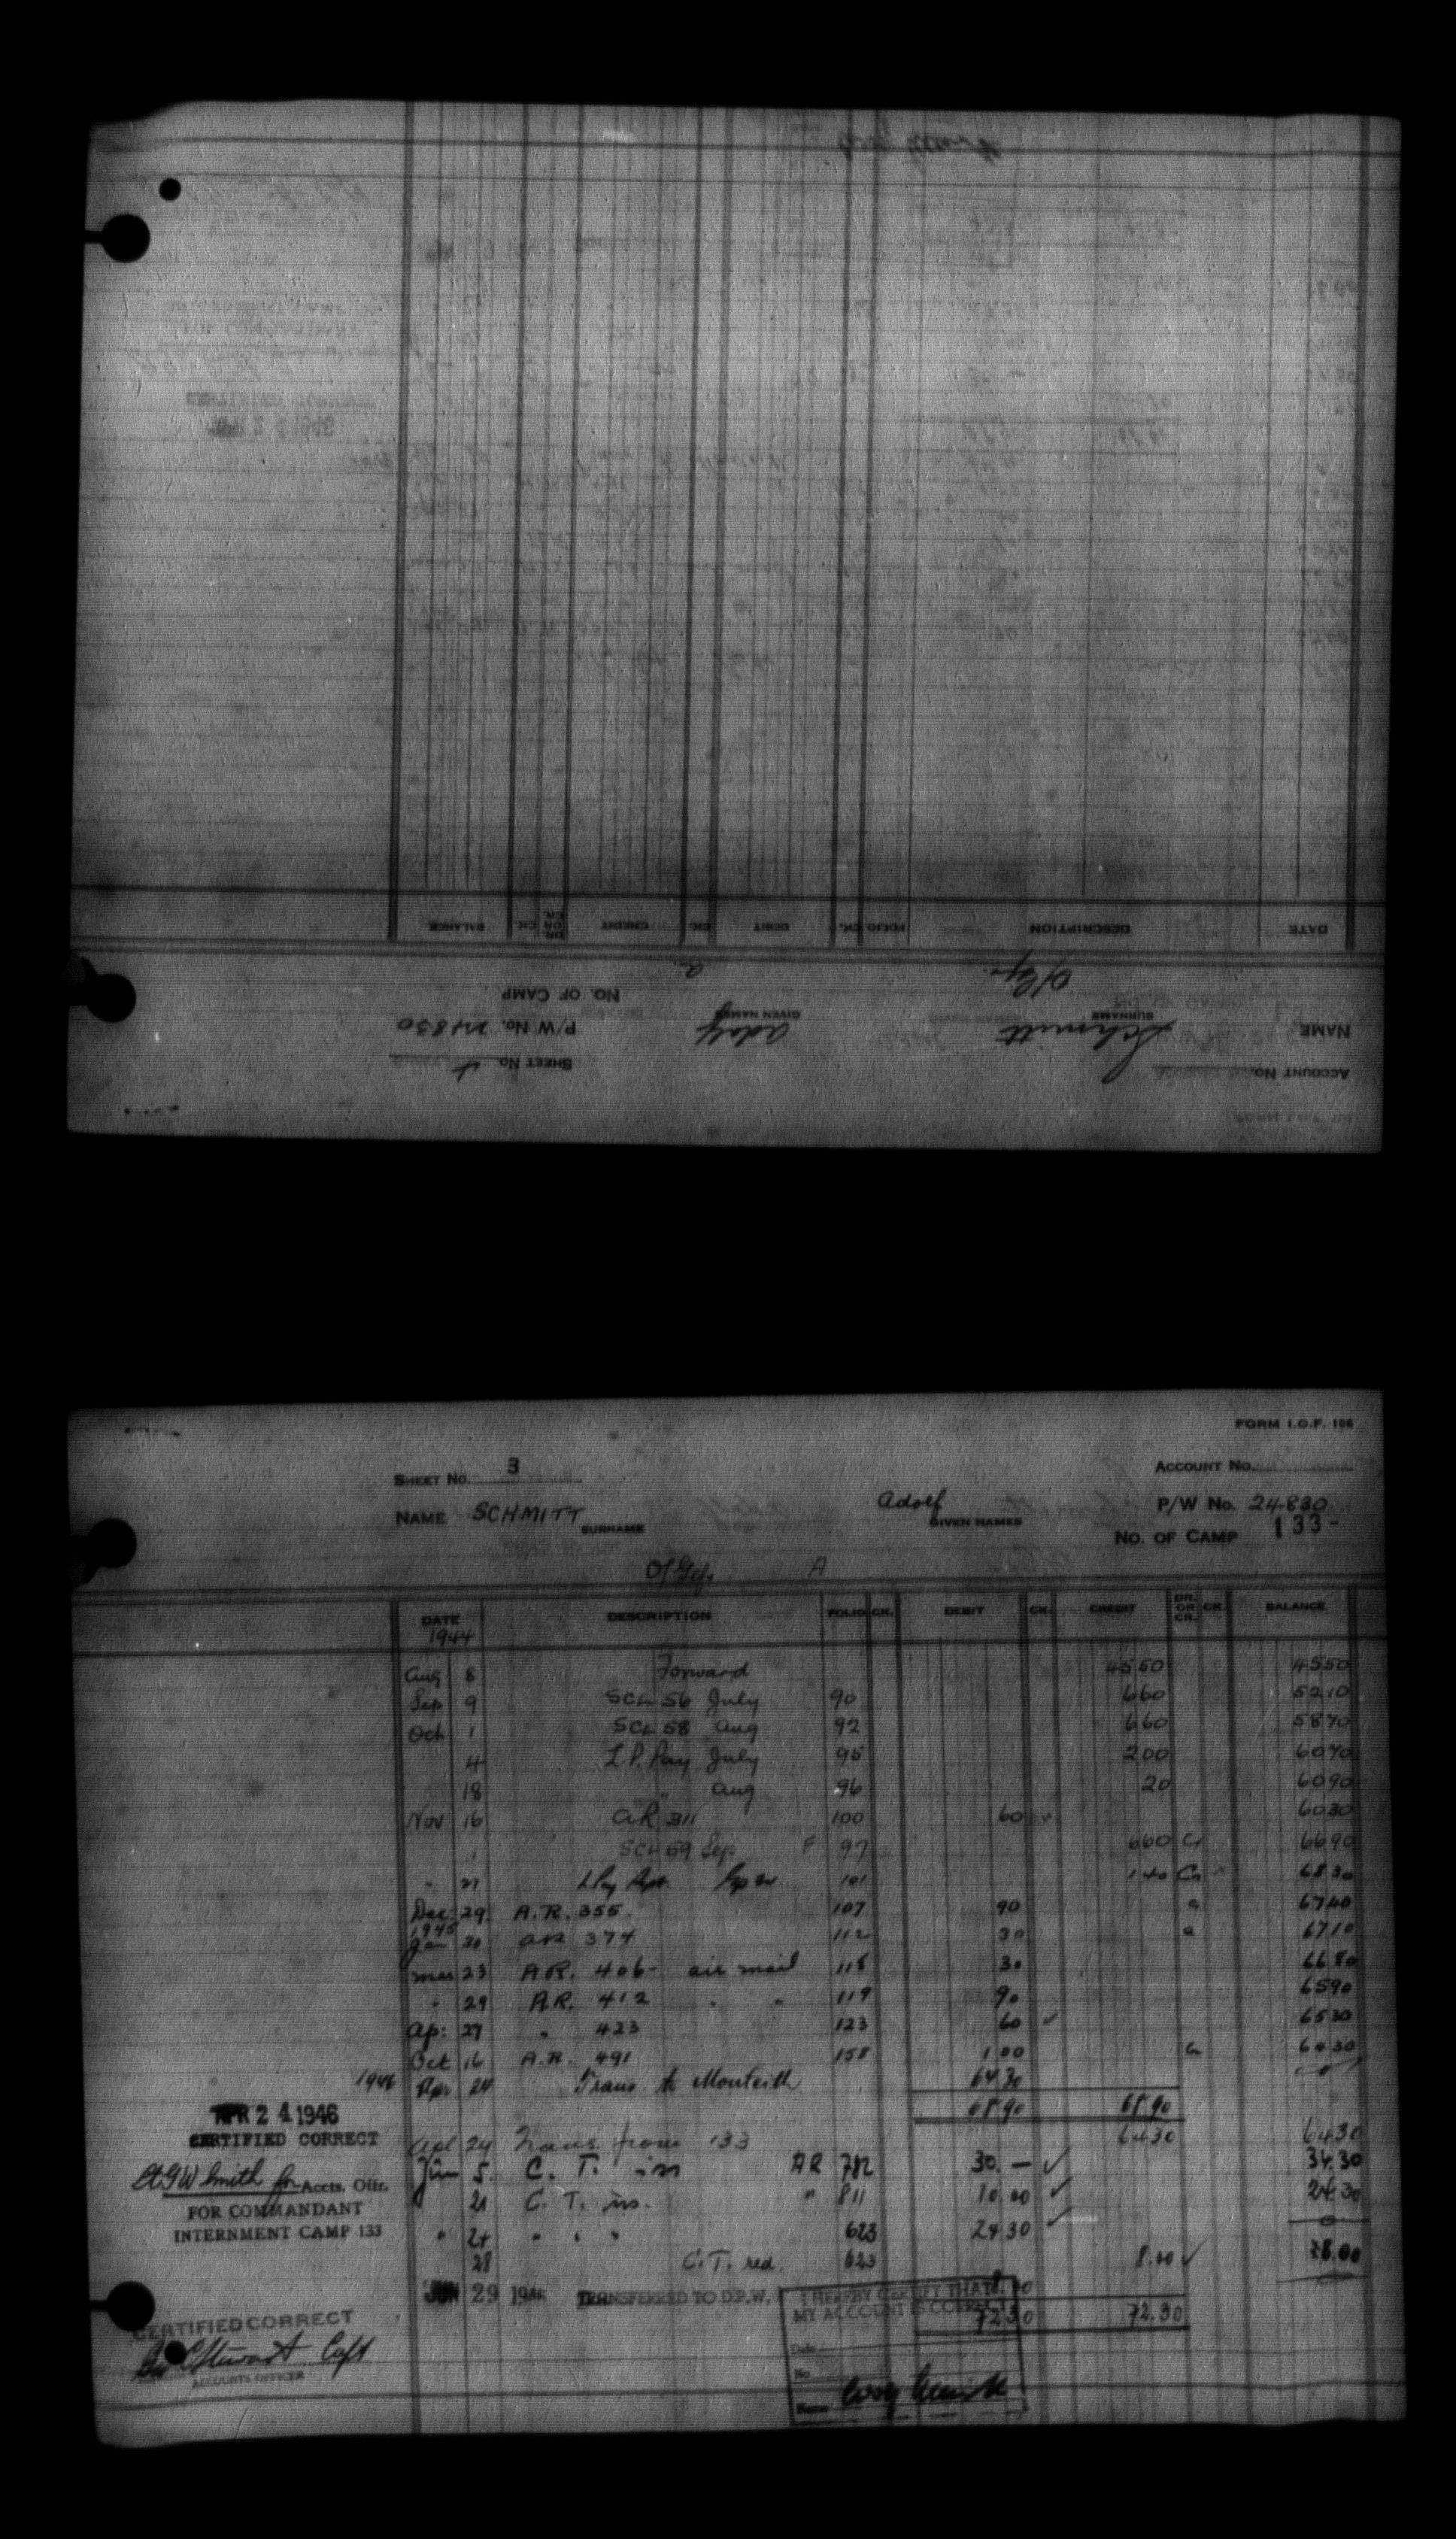 ACCOUNT No.
SHEET No. 4
NAME Schmitt adolf P/W No. 24830
SURNAME GIVEN NAMES
NO. OF CAMP
O/Gfr. a
DATE DESCRIPTION FOLIO CK. DEBIT CK. CREDIT DR. OR CR. CK. BALANCE
FORM I.O.F. 106
SHEET No. 3 ACCOUNT No.
NAME SCHMITT Adolf P/W No. 24830
SURNAME GIVEN NAMES
NO. OF CAMP 133-
O/Gefr. A
DATE DESCRIPTION FOLIO CK. DEBIT CK. CREDIT DR. OR CR. CK. BALANCE
1944
Aug 8 Forward 4550 4550
Sep 9 SCH 56 July 90 660 5210
Oct 1 SCH 58 Aug 92 660 5870
4 L.P. Pay July 95 200 6070
18 " Aug 96 20 6090
Nov 16 AR 311 100 60 6030
SCH 59 Sep. F 97 660 Cr 6690
" 21 101 140 Cr 6830
Dec. 29 A.R. 355. 107 90 6740
1945
Jan 30 AR 374 112 30 6710
Mar 23 A.R. 406- air mail 118 30 6680
" 29 A.R. 412 " " 119 90 6590
Ap: 27 " 423 123 60 ✓ 6530
Oct 16 A.R. 491 158 1 00 6430
1946 Apr 24 Trans to Monteith 6430
6890 6890
APR 24 1946
CERTIFIED CORRECT
Lt GW Smith for Accts. Offr.
FOR COMMANDANT
INTERNMENT CAMP 133
Apl 24 Trans from 133 6430 6430
Jun 5. C. T. iss AR 782 30.— ✓ 34.30
21 C. T. iss. " 811 10.00 ✓ 24.30
" 24 " " " 623 24 30 ✓ 0
28 C.T. red. 623 8.00 ✓ 8.00
JUN 29 1946 TRANSFERRED TO D.P.W. 8.00
72 30 72.30
I HEREBY CERTIFY THAT
MY ACCOUNT IS CORRECT
Date
No.
Name
CERTIFIED CORRECT
Stewart Capt
ACCOUNTS OFFICER